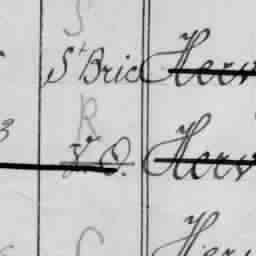 S
St Bric Herv
R
3 V. O. Herv
C Her